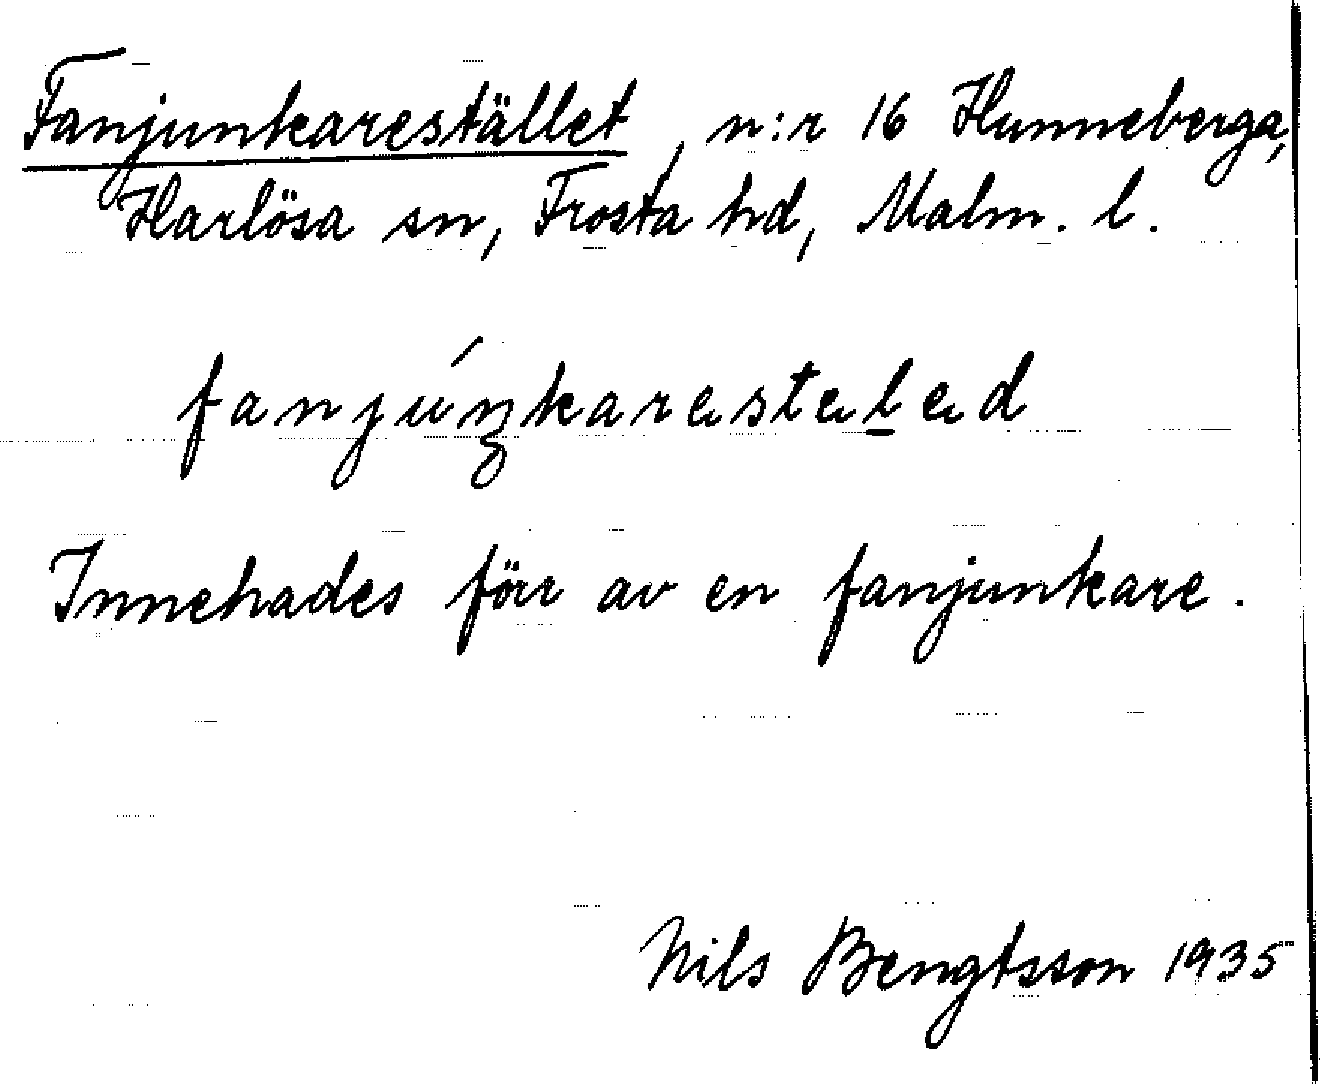 Fanjunkarestället, n:r 16 Hunneberga,
Harlösa sn, Frosta hd, Malm. l.
fanjúŋkaresteḻed
Innehades förr av en fanjunkare.
Nils Bengtsson 1935